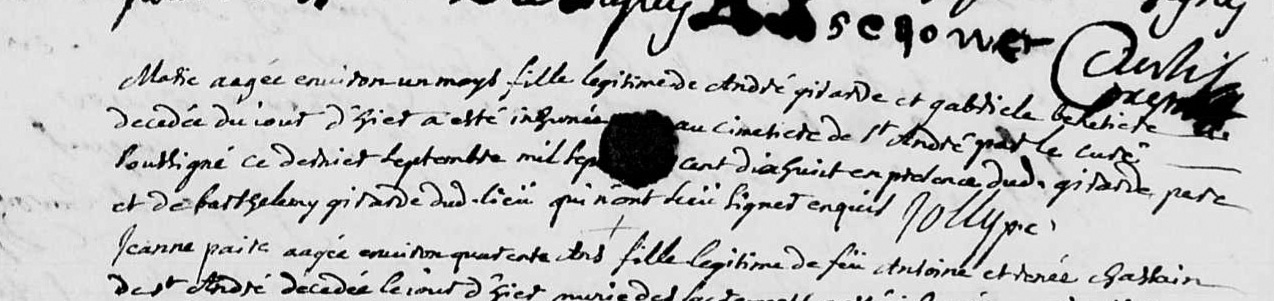 segonne
Marie aagée environ un moys fille legitime de André girarde et gabriele beletiere
decedée du iour d'hier a esté inhumée au cimetiere de st André par le curé
soussigné ce dernier septembre mil sept cent dixhuict en presence dud. girarde pere
et de barthelemy girarde dud. lieü qui n'ont sceü signer enquis Jolly pr.
Jeanne paire aagée environ quarente Ans fille legitime de feü Antoine et renée chastain
de st André decedée le iour d'hier munie des sacrements